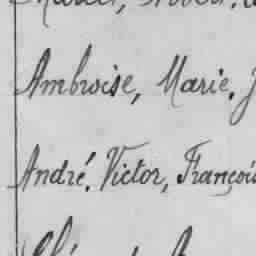 Ambroise, Marie. J
André. Victor, Françoi